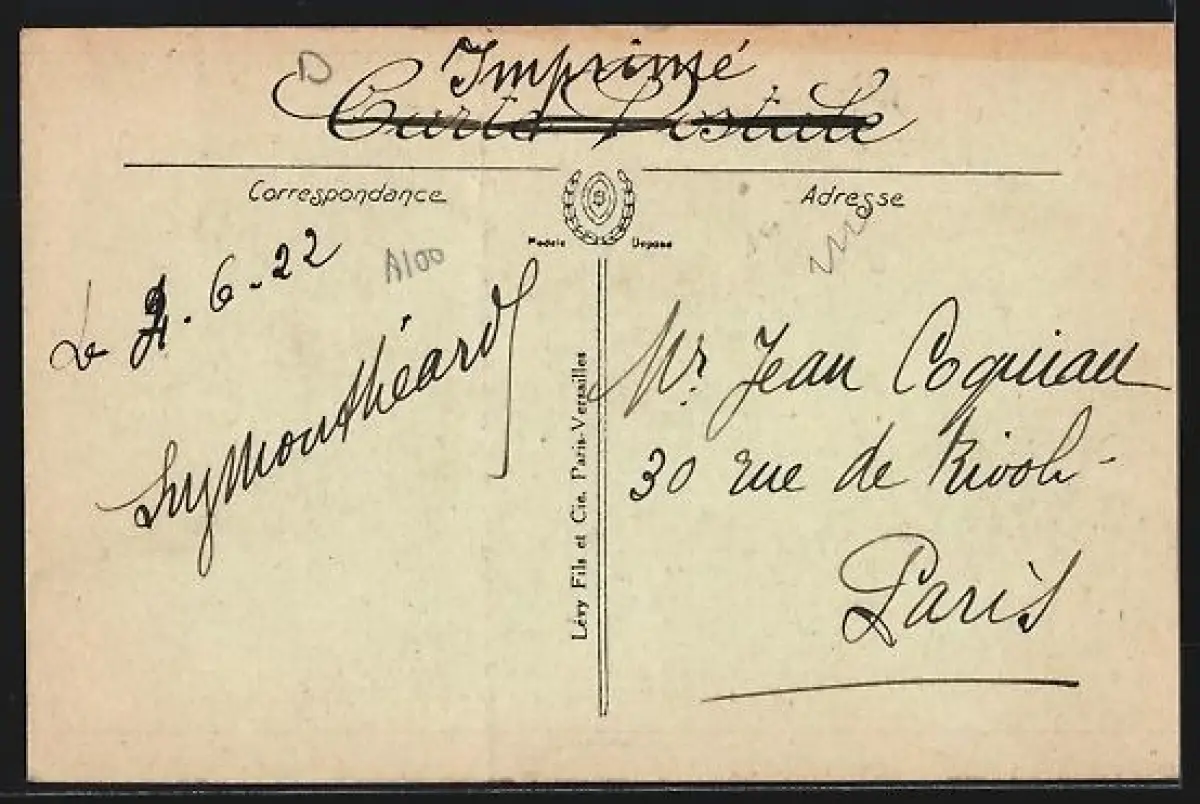 D
Imprimé
Carte Postale
Correspondance
Adresse
Modèle Déposé
Le 2.6-22
A100
Mr. Jean Coquiau
30 rue de Rivoli-
Paris
Lévy Fils et Cie, Paris-Versailles